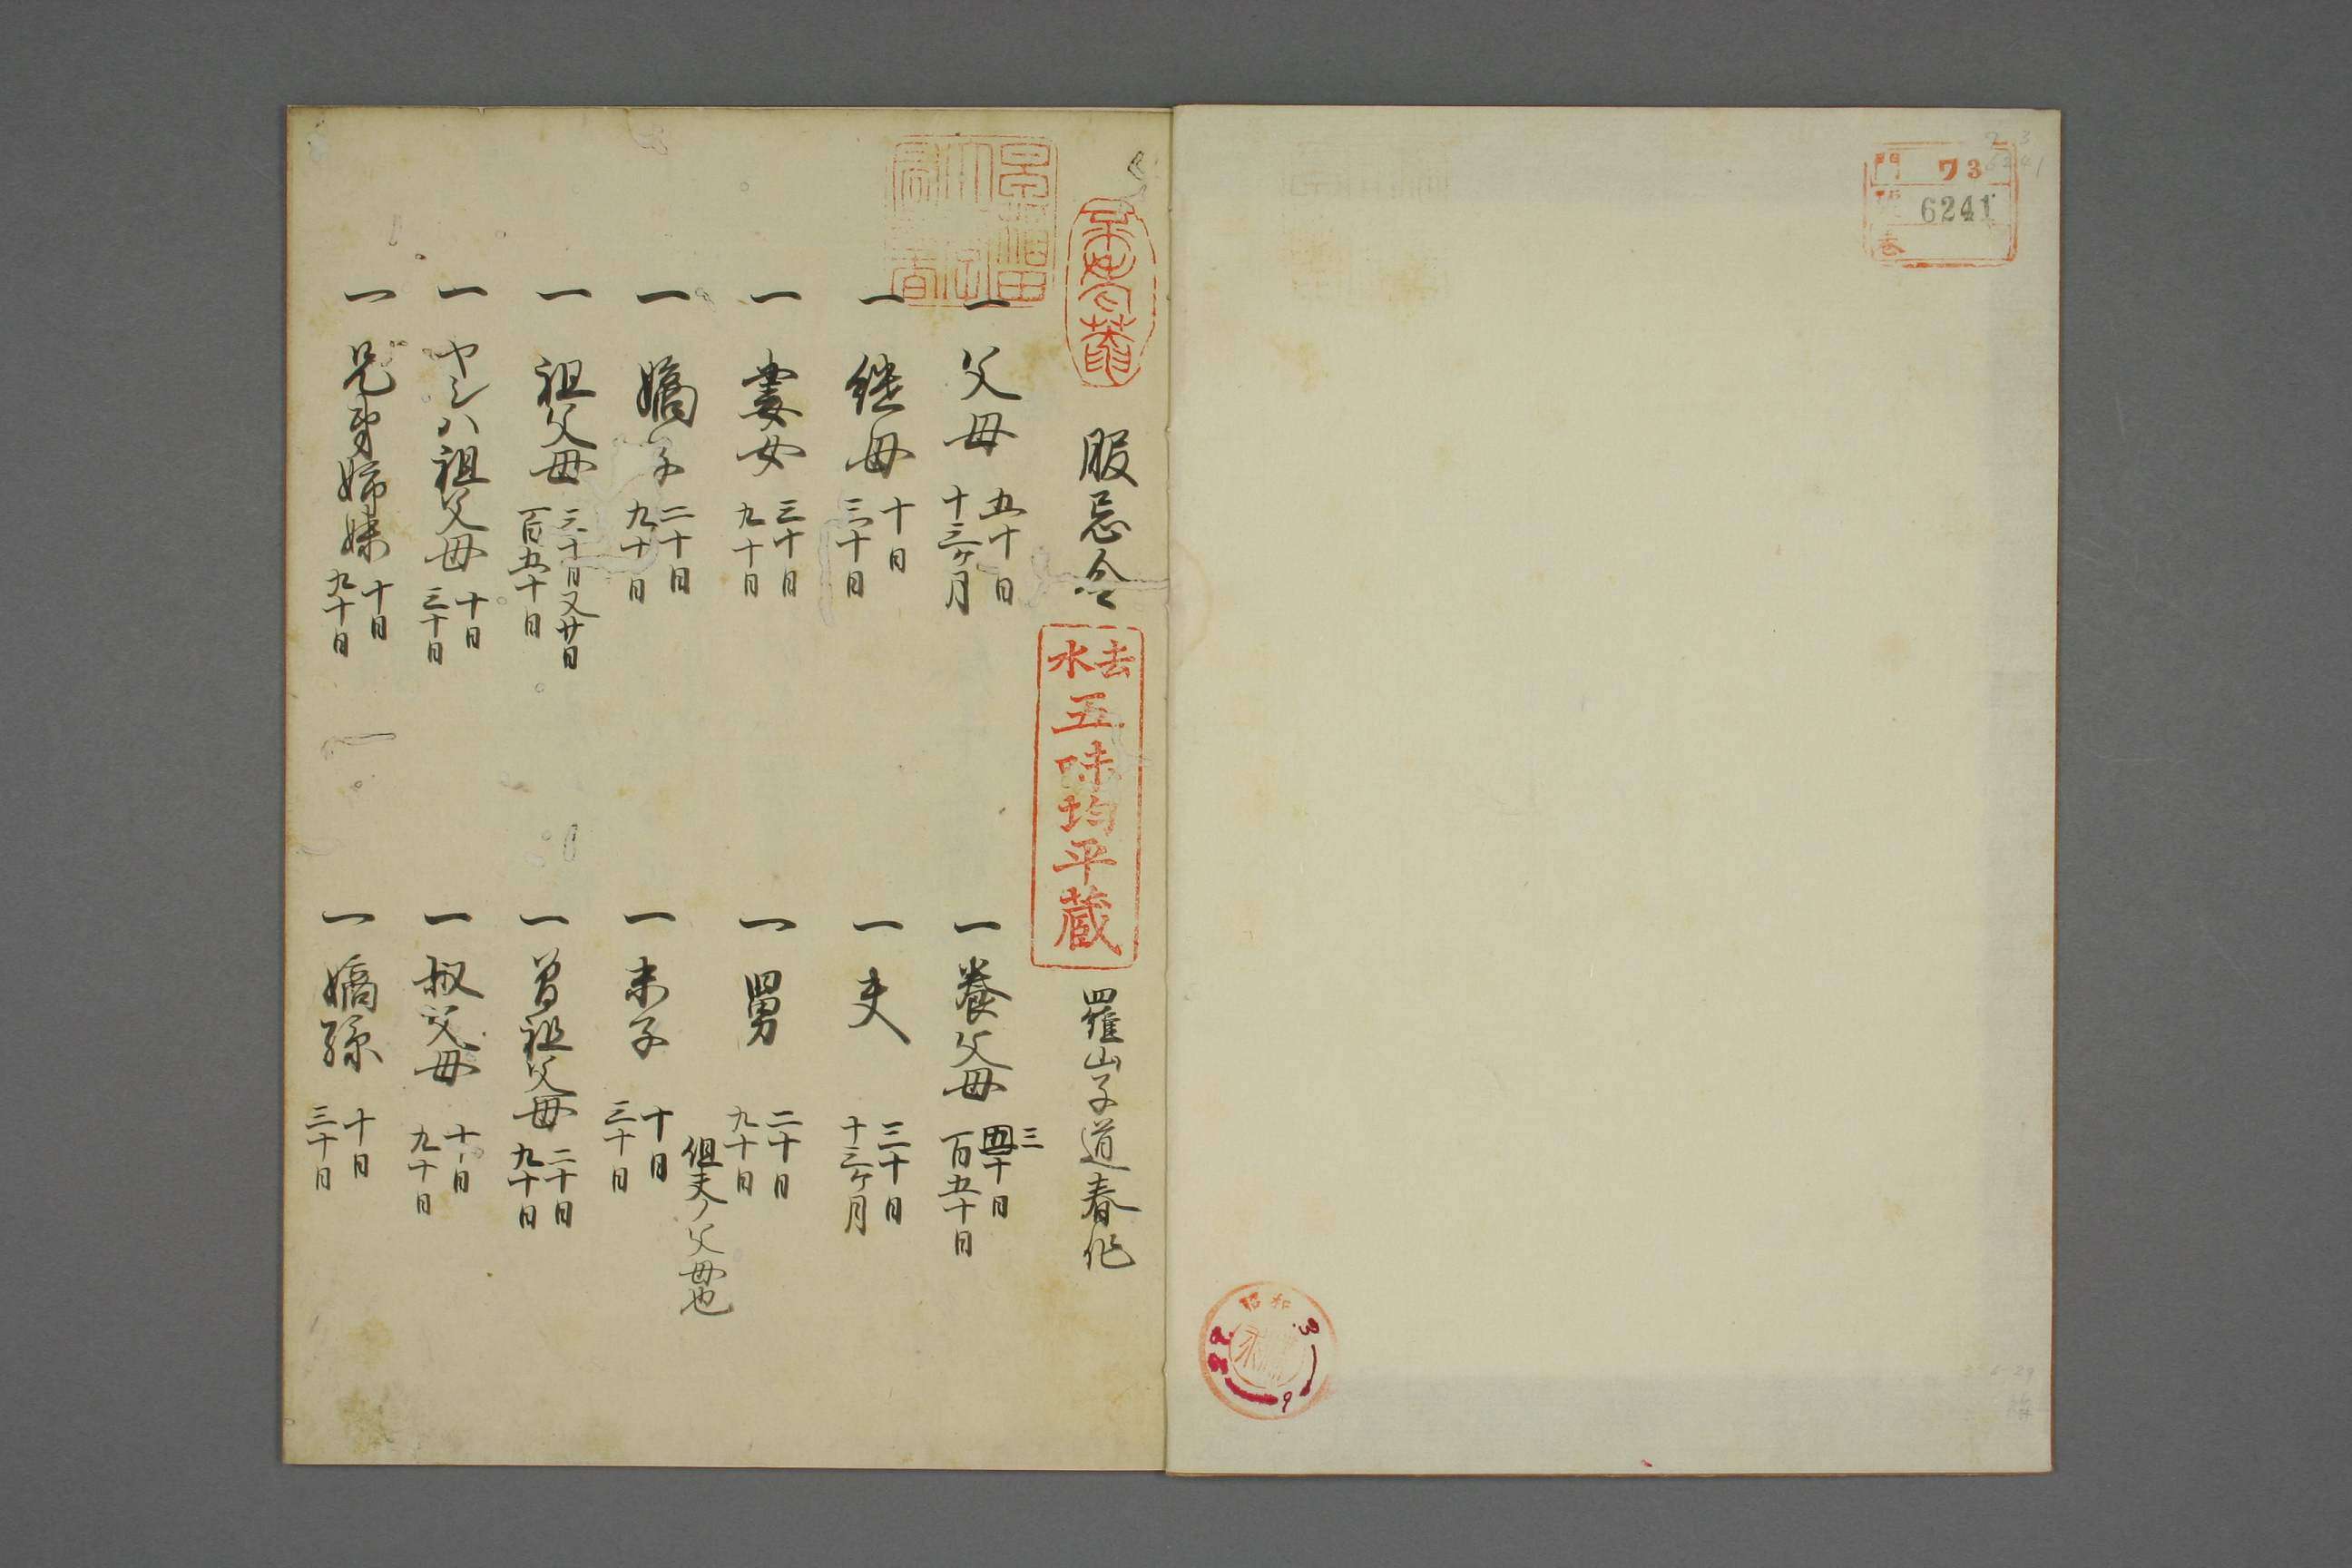 門 ワ3
號 6241
巻
昭和
服忌令 羅山子道春作
去水
五味均平蔵
一 父母 五十日 十三ヶ月
一 養父母 三十日 百五十日
一 継母 十日 三十日
一 夫 三十日 十三ヶ月
一 妻女 三十日 九十日
一 舅 二十日 九十日 但夫ノ父母也
一 嫡子 二十日 九十日
一 末子 十日 三十日
一 祖父母 三十日又廿日 百五十日
一 曽祖父母 二十日 九十日
一 ヤシハ祖父母 十日 三十日
一 叔父母 十日 九十日
一 兄弟姉妹 十日 九十日
一 嫡孫 十日 三十日